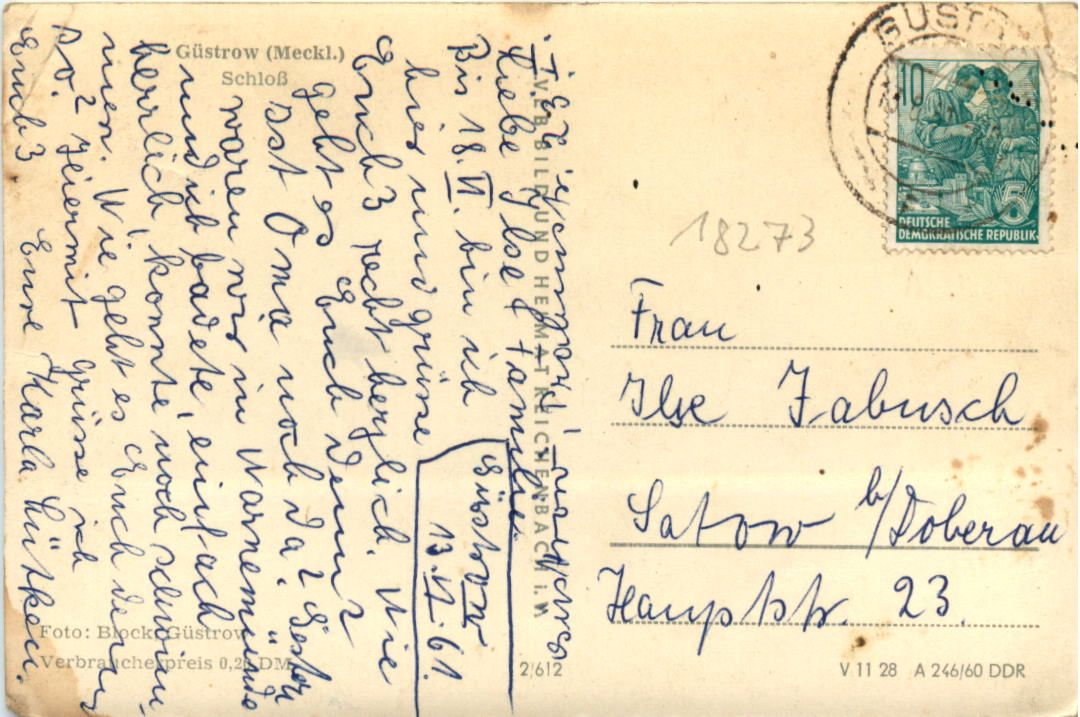 Güstrow (Meckl.)
Schloß
Güstrow
13.VI.61.
Liebe Ilse + Familie.
Bis 18. VI. bin ich
hier und grüsse
Euch 3 recht herzlich. Wie
geht es Euch denn?
Ist Omie noch da? Gestern
waren wir in Warnemünde
und ich badete einfach
herrlich, konnte noch schwim-
men. Wie geht es Euch denn
so? Hiermit grüsse ich
Euch 3 Eure Karla Lütken.
VEB BILD UND HEIMAT REICHENBACH i. V.
GÜSTROW
10
5
DEUTSCHE
DEMOKRATISCHE REPUBLIK
18273
Frau
Ilse Jabusch
Satow b/Doberan
Hauptstr. 23.
Foto: Block, Güstrow
Verbraucherpreis 0,20 DM
2/612
V 11 28 A 246/60 DDR